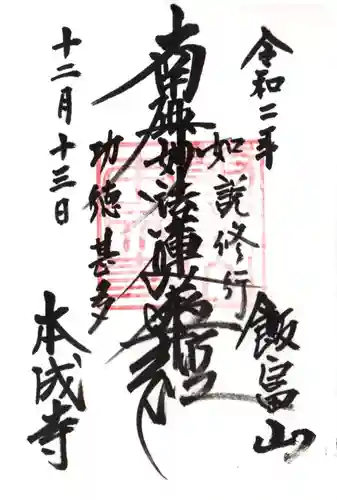 令和二年
十二月十三日
如説修行
南無妙法蓮華経
功徳甚多
飯富山
本成寺